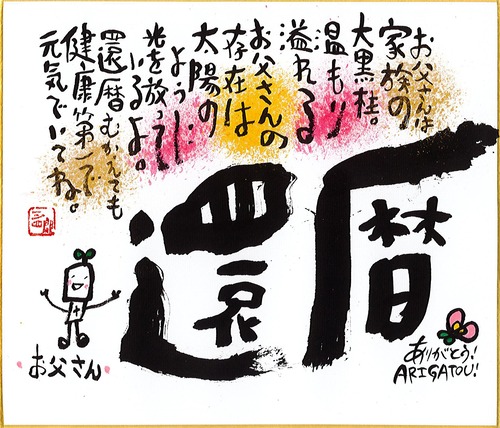 お父さんは
家族の
大黒柱。
温もり
溢れる
お父さんの
存在は
太陽の
ように
光を放って
いるよ。
還暦むかえても
健康第一で
元気でいてね。
還暦
お父さん
ありがとう!
ARIGATOU!